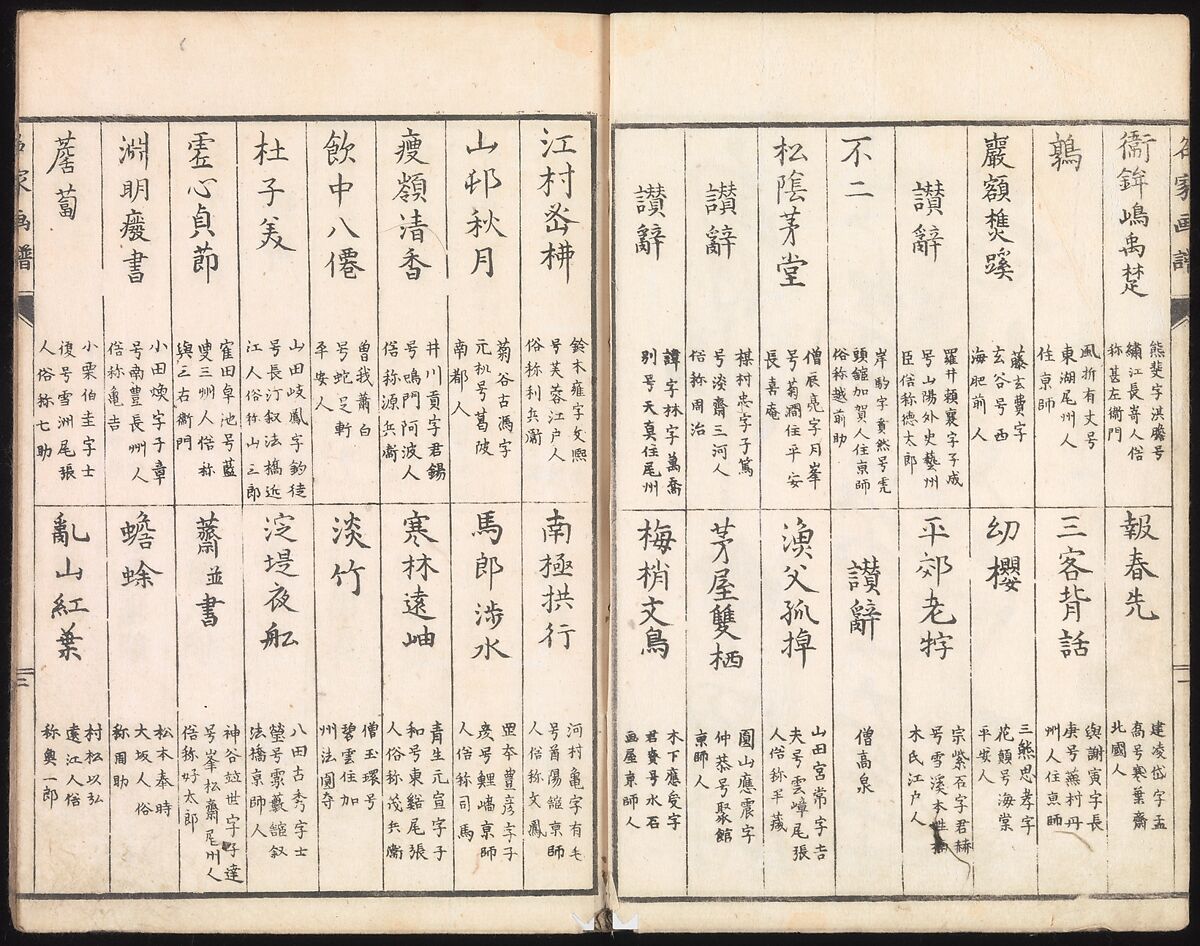 名家画譜
衞鉾嶋禹楚
熊斐字洪瞻号
繡江長寄人俗
称甚左衞門
鶉
風折有丈号
東湖尾州人
住京師
巖額樵蹊
藤玄費字
玄谷号西
海肥前人
讃辭
羅井賴襄字子成
号山陽外史藝州
臣俗称德太郎
不二
岸駒字賁然号虎
頭館加賀人住京師
俗称越前助
松陰茅堂
僧辰亮字月峯
号菊澗住平安
長喜庵
讃辭
楳村忠字子篤
号淡齋三河人
俗称周治
讃辭
諱字林字萬喬
別号天真住尾州
報春先
建凌岱字孟
喬号寒葉齋
北國人
三客背話
與謝寅字長
庚号蕪村丹
州人住京師
幼櫻
三熊思孝字
花顛号海棠
平安人
平郊老牸
宗紫石字君赫
号雪溪本姓楠
木氏江户人
讃辭
僧高泉
漁父孤掉
山田宮常字吉
夫号雲嶂尾張
人俗称平藏
茅屋雙栖
圓山應震字
仲恭号聚館
京師人
梅梢文鳥
木下應受字
君賚号水石
画屋京師人
一
江村發柹
鈴木雍字文熙
号芙蓉江户人
俗称利兵衞
山邨秋月
菊谷古馮字
元杓号葛陂
南都人
瘦嶺清香
井川貢字君錫
号鳴門阿波人
俗称源兵衞
飲中八僊
曽我蕭白
号蛇足軒
平安人
杜子美
山田岐鳳字鈞徒
号長汀叙法橋近
江人俗称山三郎
虛心貞節
寉田卓池号藍
叟三州人俗称
與三右衞門
淵明癈書
小田煥字子章
号南豊長州人
俗称亀吉
蒼蔔
小栗伯圭字士
復号雪洲尾張
人俗称七助
南極拱行
河村亀字有毛
号酋陽館京師
人俗称文鳳
馬郎涉水
岡本豊彦字子
彦号鯉嶠京師
人俗称司馬
寒林遠岫
青生元宣字子
和号東谿尾張
人俗称茂兵衞
淡竹
僧玉瑸号
碧雲住加
州法圓寺
淀堤夜舩
八田古秀字士
瑩号雲藪館叙
法橋京師人
蘭並書
神谷竝世字子達
号峯松齋尾州人
俗称好太郎
蟾蜍
松本奉時
大坂人俗
称周助
亂山紅葉
村松以弘
遠江人俗
称與一郎
名家画譜
二